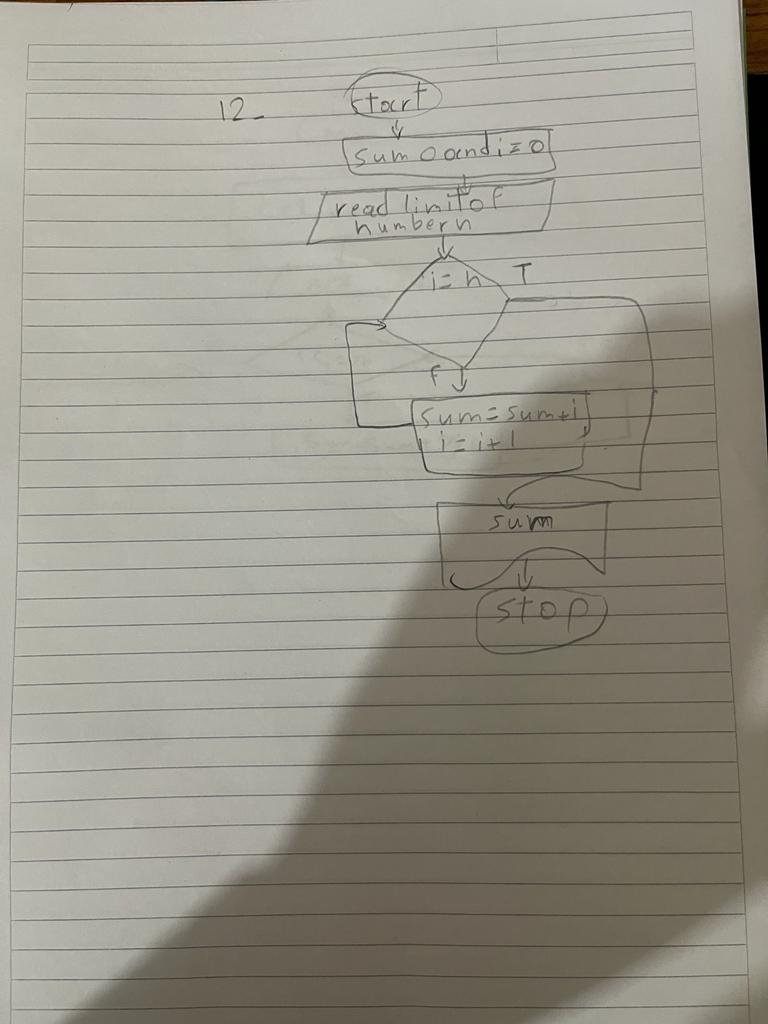 12-
start
sum 0 and i = 0
read limit of
number n
i = n T
F
sum = sum + i
i = i + 1
sum
stop